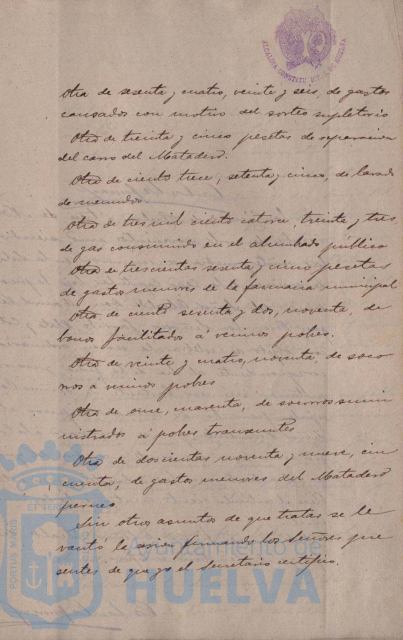 ALCALDIA CONSTITUCIONAL DE HUELVA
Otra de sesenta y cuatro, veinte y seis, de gastos
causados con motivo del sorteo supletorio
Otra de treinta y cinco pesetas de reparacion
del carro del Matadero.
Otra de ciento trece, setenta y cinco, de lavado
de menudos
Otra de tres mil ciento catorce, treinta y tres
de gas consumido en el alumbrado público
Otra de trescientas sesenta y cinco pesetas
de gastos menores de la farmacia municipal
Otra de ciento sesenta y dos, noventa, de
bonos facilitados á vecinos pobres.
Otra de veinte y cuatro, noventa de soco-
rros á vecinos pobres
Otra de once, cuarenta, de socorros sumi
nistrados á pobres transeuntes
Otra de doscientas noventa y nueve, cin
cuenta, de gastos menores del Matadero
Sin otros asuntos de que tratar se le
vantó la sesion firmando los Señores pre
sentes de que yo el Secretario certifico.
PORTUS MARIS
ET TERRAE
Ayuntamiento de
HUELVA